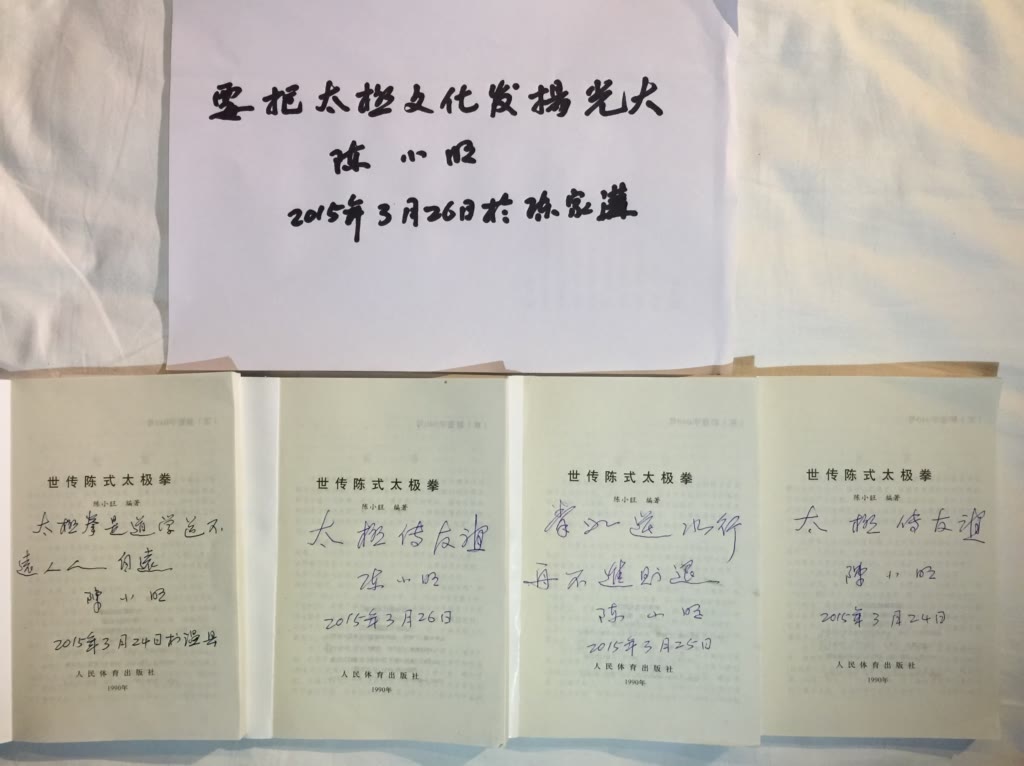 要把太極文化发揚光大
陈小旺
2015年3月26日於陈家溝
世传陈式太极拳
陈小旺 编著
太極拳是道学道不
遠人人自遠
陳小旺
2015年3月24日於温县
人民体育出版社
1990年
世传陈式太极拳
陈小旺 编著
太極传友谊
陈小旺
2015年3月26日
人民体育出版社
1990年
世传陈式太极拳
陈小旺 编著
拳如逆水行
舟不進则退
陈小旺
2015年3月25日
人民体育出版社
1990年
世传陈式太极拳
陈小旺 编著
太極传友谊
陳小旺
2015年3月24日
人民体育出版社
1990年